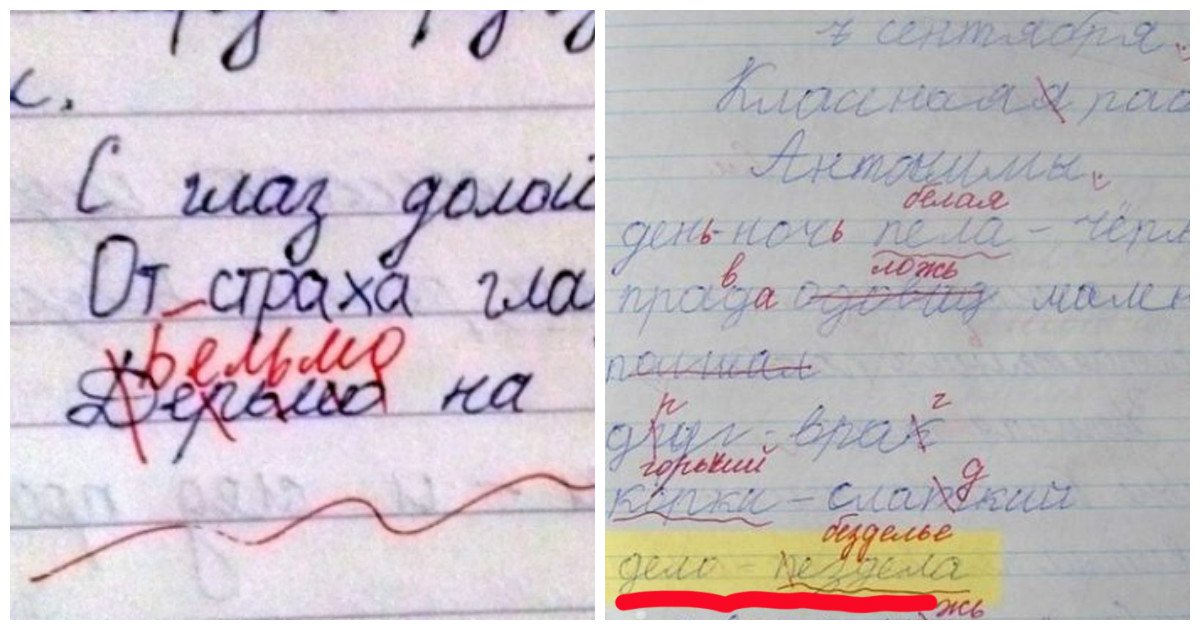 С глаз долой
От страха гла
Бельмо
Дерьмо на
7 сентября.
Антонимы.
белая
день-ночь пела - чёрн
ложь
правда мален
г
друг - врах
горький
д
керки - слапкий
безделье
дело - пездела
жь